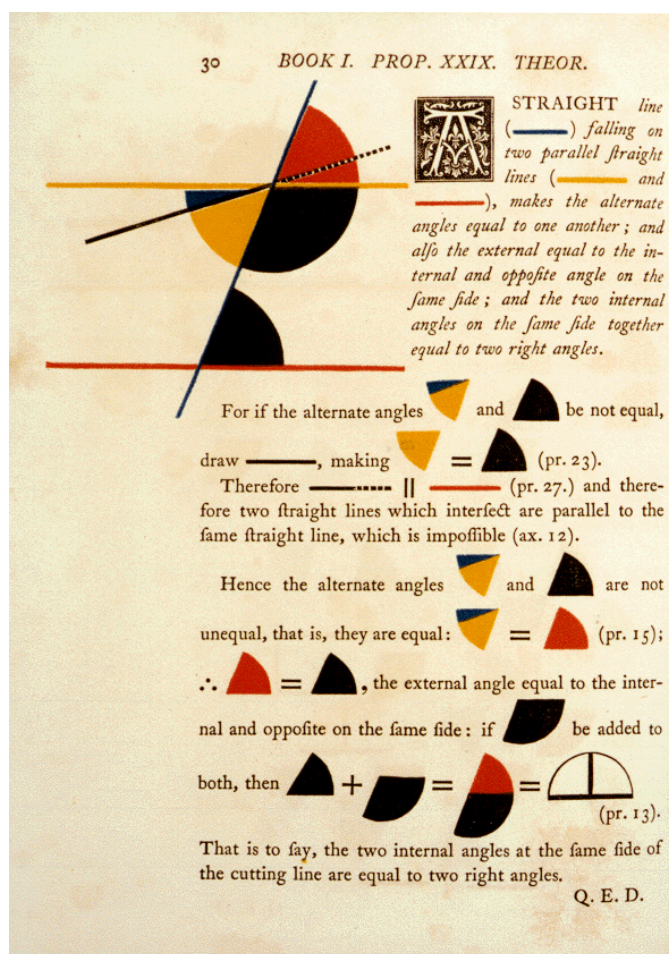 30 BOOK I. PROP. XXIX. THEOR.
A STRAIGHT line
( ) falling on
two parallel ſtraight
lines ( and
), makes the alternate
angles equal to one another; and
alſo the external equal to the in-
ternal and oppoſite angle on the
ſame ſide; and the two internal
angles on the ſame ſide together
equal to two right angles.
For if the alternate angles and be not equal,
draw , making = (pr. 23).
Therefore || (pr. 27.) and there-
fore two ſtraight lines which interſect are parallel to the
ſame ſtraight line, which is impoſſible (ax. 12).
Hence the alternate angles and are not
unequal, that is, they are equal: = (pr. 15);
∴ = , the external angle equal to the inter-
nal and oppoſite on the ſame ſide: if be added to
both, then + = =
(pr. 13).
That is to ſay, the two internal angles at the ſame ſide of
the cutting line are equal to two right angles.
Q. E. D.